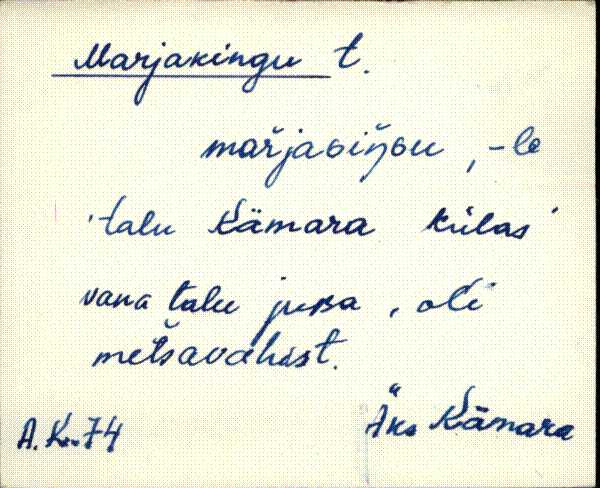 Marjakingu t.
mařjaɢiŋ̆ɢu, -le
'talu Kämara külas'
vana talu jusa, oli
metsavahist.
A. K. 74 Äks Kämara